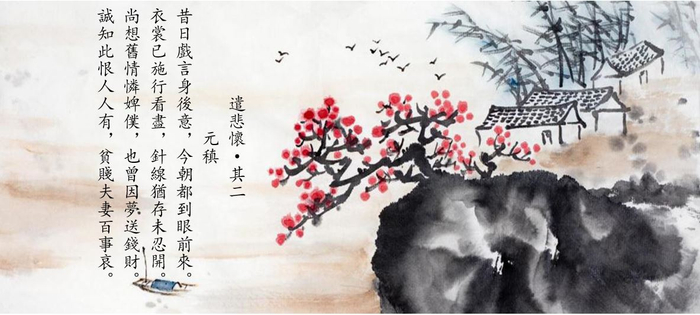 遣悲懷·其二
元稹
昔日戲言身後意，今朝都到眼前來。
衣裳已施行看盡，針線猶存未忍開。
尚想舊情憐婢僕，也曾因夢送錢財。
誠知此恨人人有，貧賤夫妻百事哀。